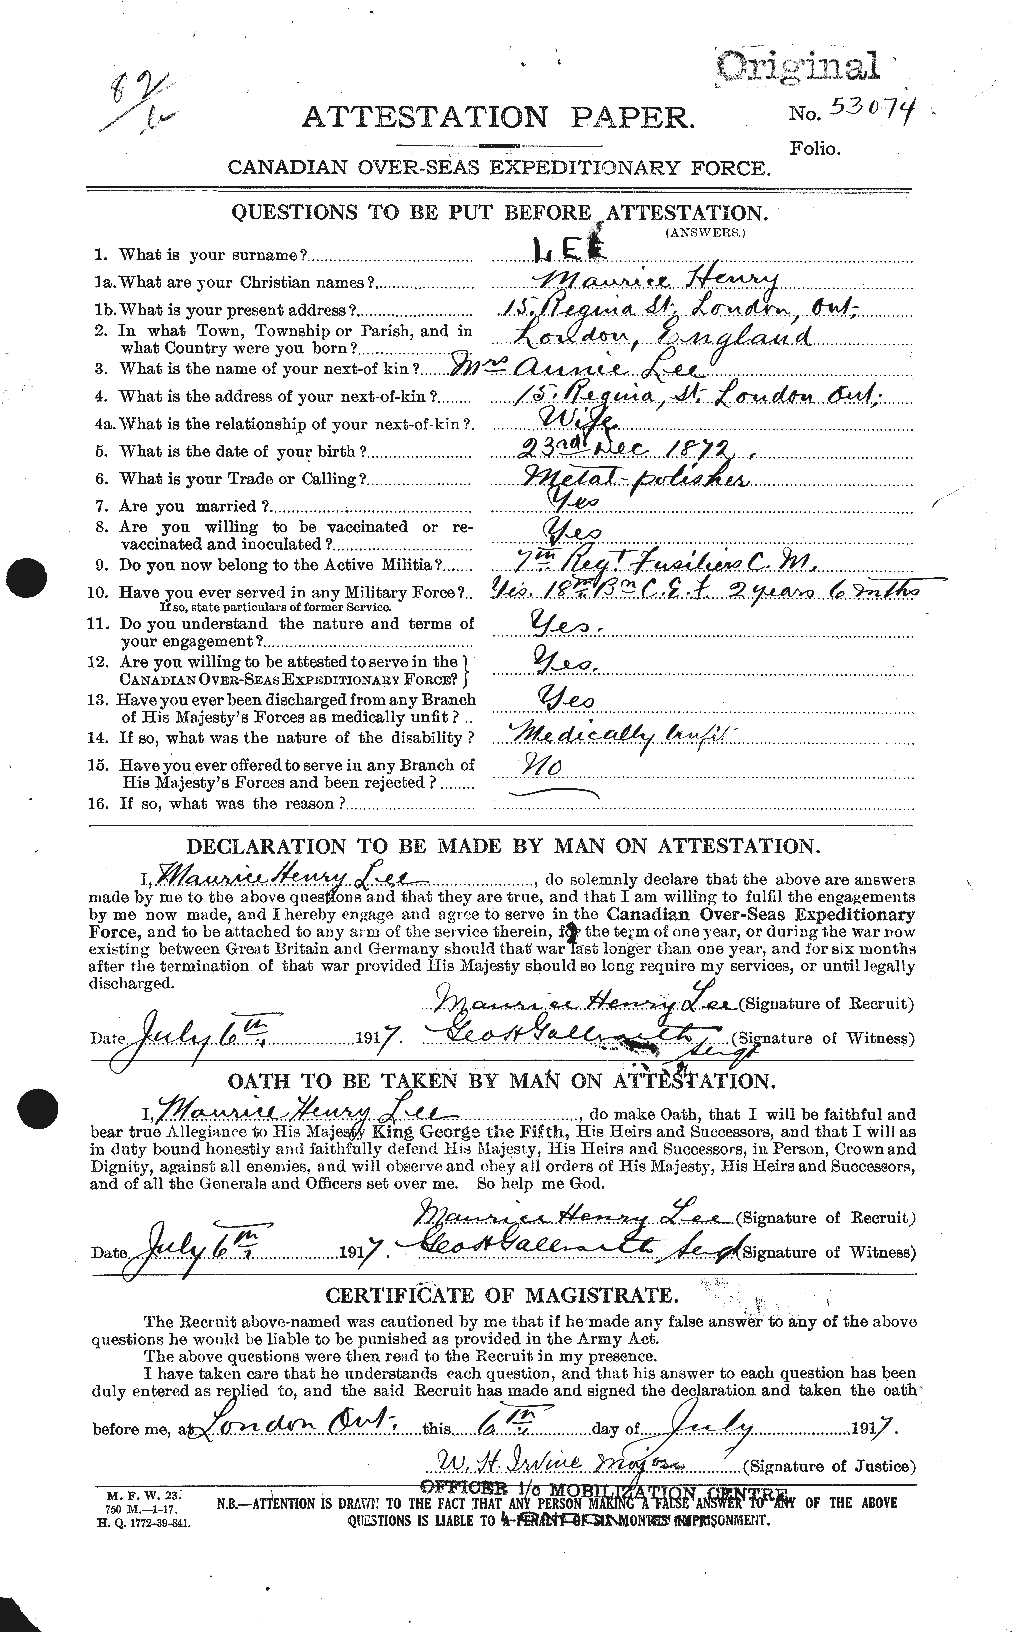 Original
82
ATTESTATION PAPER.
No. 53074
Folio.
CANADIAN OVER-SEAS EXPEDITIONARY FORCE.
QUESTIONS TO BE PUT BEFORE ATTESTATION.
(ANSWERS.)
1. What is your surname? LEE
1a. What are your Christian names? Maurice Henry
1b. What is your present address? 15. Regina St. London, Ont.
2. In what Town, Township or Parish, and in
what Country were you born? London, England
3. What is the name of your next-of kin? Mrs Annie Lee
4. What is the address of your next-of-kin? 15. Regina, St. London Ont.
4a. What is the relationship of your next-of-kin? Wife
5. What is the date of your birth? 23rd Dec 1872.
6. What is your Trade or Calling? Metal-polisher
7. Are you married? Yes
8. Are you willing to be vaccinated or re-
vaccinated and inoculated? Yes
9. Do you now belong to the Active Militia? 7th Regt Fusiliers C. M.
10. Have you ever served in any Military Force? Yes. 18th Bn C.E.F. 2 years 6 mths
If so, state particulars of former Service.
11. Do you understand the nature and terms of
your engagement? Yes.
12. Are you willing to be attested to serve in the
CANADIAN OVER-SEAS EXPEDITIONARY FORCE? Yes.
13. Have you ever been discharged from any Branch
of His Majesty's Forces as medically unfit? Yes
14. If so, what was the nature of the disability? Medically Unfit
15. Have you ever offered to serve in any Branch of
His Majesty's Forces and been rejected? No
16. If so, what was the reason?
DECLARATION TO BE MADE BY MAN ON ATTESTATION.
I, Maurice Henry Lee, do solemnly declare that the above are answers
made by me to the above questions and that they are true, and that I am willing to fulfil the engagements
by me now made, and I hereby engage and agree to serve in the Canadian Over-Seas Expeditionary
Force, and to be attached to any arm of the service therein, for the term of one year, or during the war now
existing between Great Britain and Germany should that war last longer than one year, and for six months
after the termination of that war provided His Majesty should so long require my services, or until legally
discharged.
Maurice Henry Lee (Signature of Recruit)
Date July 6th 1917. Geo H Gallbraith Sergt (Signature of Witness)
OATH TO BE TAKEN BY MAN ON ATTESTATION.
I, Maurice Henry Lee, do make Oath, that I will be faithful and
bear true Allegiance to His Majesty King George the Fifth, His Heirs and Successors, and that I will as
in duty bound honestly and faithfully defend His Majesty, His Heirs and Successors, in Person, Crown and
Dignity, against all enemies, and will observe and obey all orders of His Majesty, His Heirs and Successors,
and of all the Generals and Officers set over me. So help me God.
Maurice Henry Lee (Signature of Recruit)
Date July 6th 1917. Geo H Gallbraith Sergt (Signature of Witness)
CERTIFICATE OF MAGISTRATE.
The Recruit above-named was cautioned by me that if he made any false answer to any of the above
questions he would be liable to be punished as provided in the Army Act.
The above questions were then read to the Recruit in my presence.
I have taken care that he understands each question, and that his answer to each question has been
duly entered as replied to, and the said Recruit has made and signed the declaration and taken the oath
before me, at London Ont. this 6th day of July 1917.
W. H. Irvine Major (Signature of Justice)
OFFICER I/C MOBILIZATION CENTRE
M. F. W. 23.
750 M.—1-17.
H. Q. 1772-39-841.
N.B.—ATTENTION IS DRAWN TO THE FACT THAT ANY PERSON MAKING A FALSE ANSWER TO ANY OF THE ABOVE
QUESTIONS IS LIABLE TO A PENALTY OF SIX MONTHS' IMPRISONMENT.